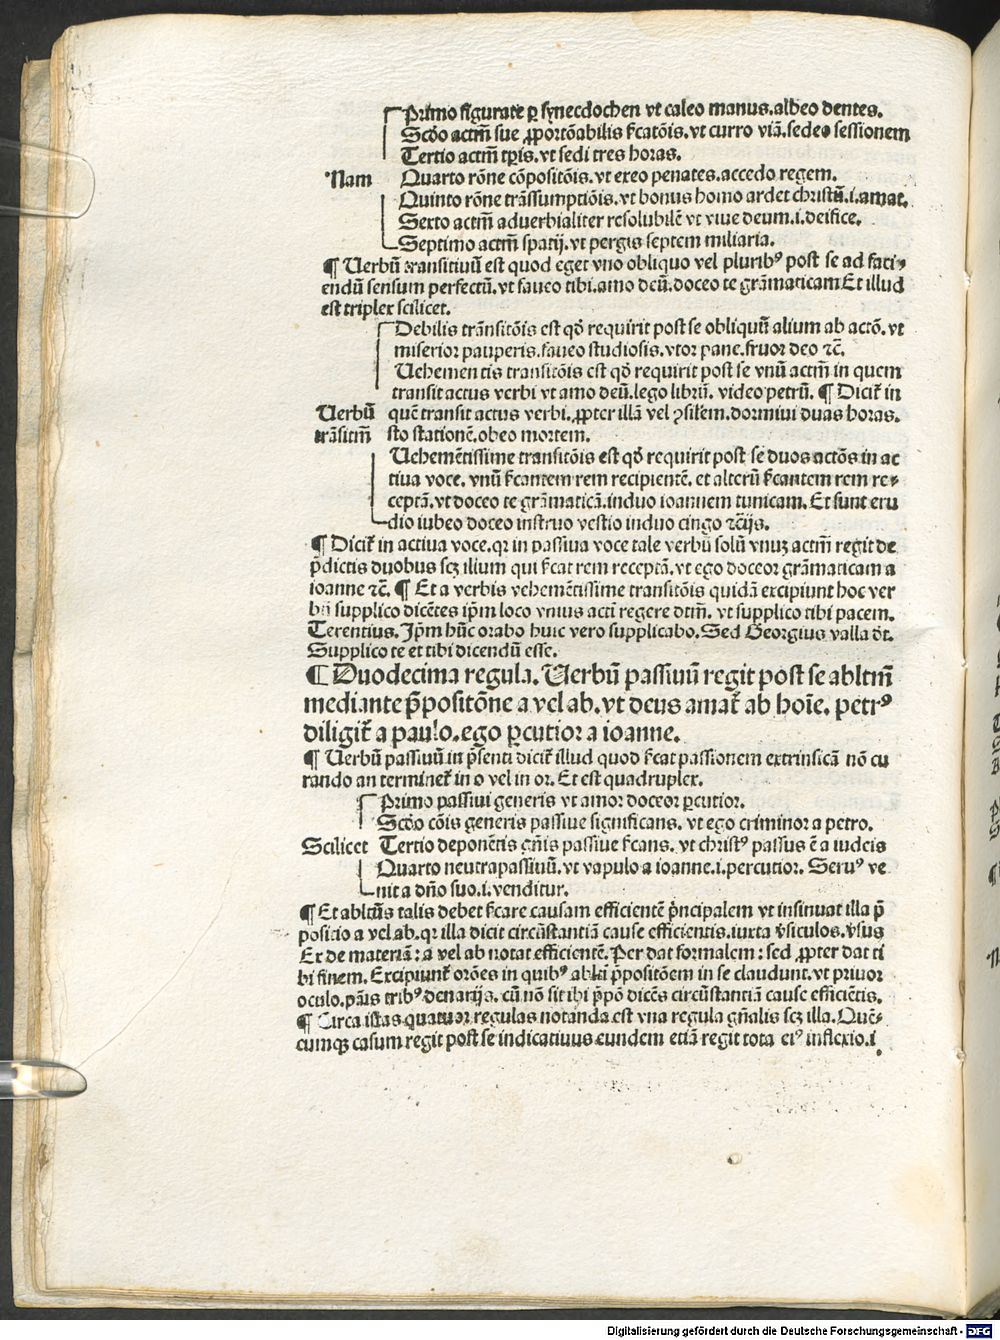 Primo figurate ꝑ synecdochen vt caleo manus.albeo dentes.
Scḋo actm̄ sue ꝓportōabilis ſ̄catōis.vt curro viā.sedeo sessionem
Tertio actm̄ tp̄is.vt sedi tres horas.
Nam Quarto rōne cōpositōis.vt exeo penates.accedo regem.
Quinto rōne trāssumptiōis.vt bonus homo ardet christū.i.amat.
Sexto actm̄ aduerbialiter resolubilē vt viue deum.i.deifice.
Septimo actm̄ spatij.vt pergis septem miliaria.
¶ Uerbū transitiuū est quod eget vno obliquo vel pluribꝰ post se ad faci-
endū sensum perfectū.vt faueo tibi.amo deū.doceo te grāmaticam Et illud
est triplex scilicet.
Debilis trānsitōis est qḋ requirit post se obliquū alium ab actō. vt
miserior pauperis.faueo studiosis.vtor pane.fruor deo ⁊c̄.
Uehementis transitōis est qḋ requirit post se vnū actm̄ in quem
transit actus verbi vt amo deū.lego librū. video petrū. ¶ Dicit̄ in
Uerbū quē transit actus verbi. ꝓpter illā vel ꝯsil̄em.dormiui duas horas.
trāsitm̄ sto stationē.obeo mortem.
Uehemētissime transitōis est qḋ requirit post se duos actōs in ac
tiua voce. vnū ſ̄cantem rem recipientē. et alterū ſ̄cantem rem re-
ceptā.vt doceo te grāmaticā.induo ioannem tunicam. Et sunt eru
dio iubeo doceo instruo vestio induo cingo ⁊c̄ijs.
¶ Dicit̄ in actiua voce.qꝛ in passiua voce tale verbū solū vnuꝫ actm̄ regit de
p̄dictis duobus scꝫ illum qui ſ̄cat rem receptā.vt ego doceor grāmaticam a
ioanne ⁊c̄. ¶ Et a verbis vehemētissime transitōis quidā excipiunt hoc ver
bū supplico dicētes ip̄m loco vnius actī regere dtm̄. vt supplico tibi pacem.
Terentius. Ip̄m hūc orabo huic vero supplicabo. Sed Georgius valla dt̄.
Supplico te et tibi dicendū esse.
¶ Duodecima regula. Uerbū passiuū regit post se abltm̄
mediante p̄positōne a vel ab. vt deus amat̄ ab hoīe. petrꝰ
diligit̄ a paulo.ego ꝑcutior a ioanne.
¶ Uerbū passiuū in p̄senti dicit̄ illud quod ſ̄cat passionem extrinsicā nō cu
rando an terminet̄ in o vel in or. Et est quadruplex.
Primo passiui generis vt amor doceor ꝑcutior.
Scḋo cōis generis passiue significans. vt ego criminor a petro.
Scilicet Tertio deponētis gn̄is passiue ſ̄cans. vt christꝰ passus ē a iudeis
Quarto neutrapassiuū. vt vapulo a ioanne.i.percutior. Seruꝰ ve
nit a dn̄o suo.i.venditur.
¶ Et abltūs talis debet ſ̄care causam efficientē p̄ncipalem vt insinuat illa p̄
positio a vel ab. qꝛ illa dicit circūstantiā cause efficientis.iuxta v̄siculos.v̄sus
Ex de materiā: a vel ab notat efficientē. Per dat formalem: sed ꝓpter dat ti
bi finem. Excipiunt̄ orōes in quibꝰ abltī p̄positōem in se claudunt.vt priuor
oculo. panis tribꝰ denarijs. cū nō sit ibi p̄pō dicēs circūstantiā cause efficiētis.
¶ Circa istas quatuor regulas notanda est vna regula gn̄alis scꝫ illa. Quē-
cumqꝫ casum regit post se indicatiuus eundem etiā regit tota eiꝰ inflexio.i
Digitalisierung gefördert durch die Deutsche Forschungsgemeinschaft - DFG